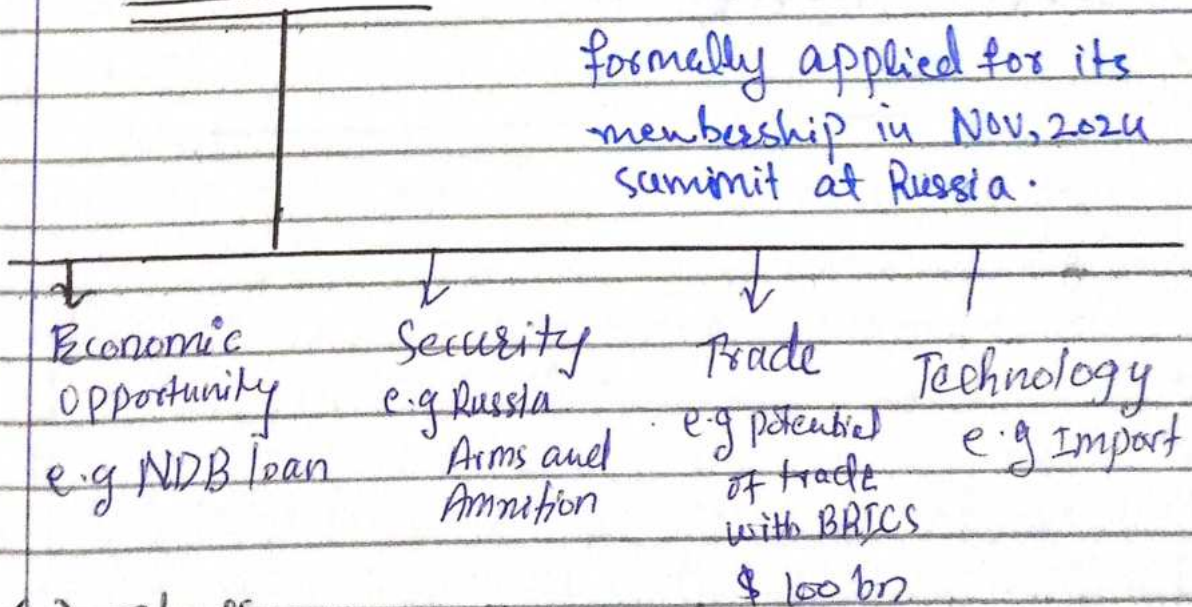 formally applied for its
membership in Nov, 2024
summit at Russia.
Economic
Opportunity
e.g NDB loan
Security
e.g Russia
Arms and
Amnition
Trade
e.g potential
of trade
with BRICS
$ 100 bn
Technology
e.g Import